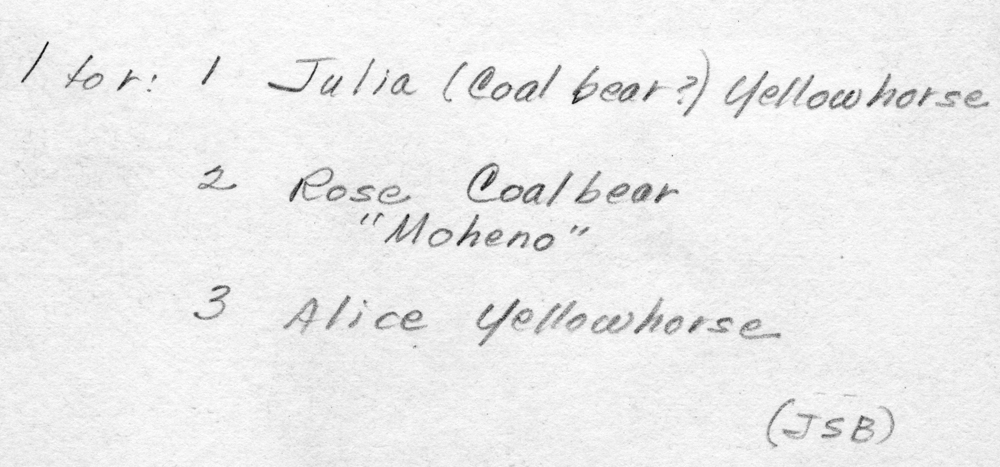 1 to r: 1 Julia (Coal bear?) Yellowhorse
2 Rose Coalbear
"Moheno"
3 Alice Yellowhorse
(JSB)